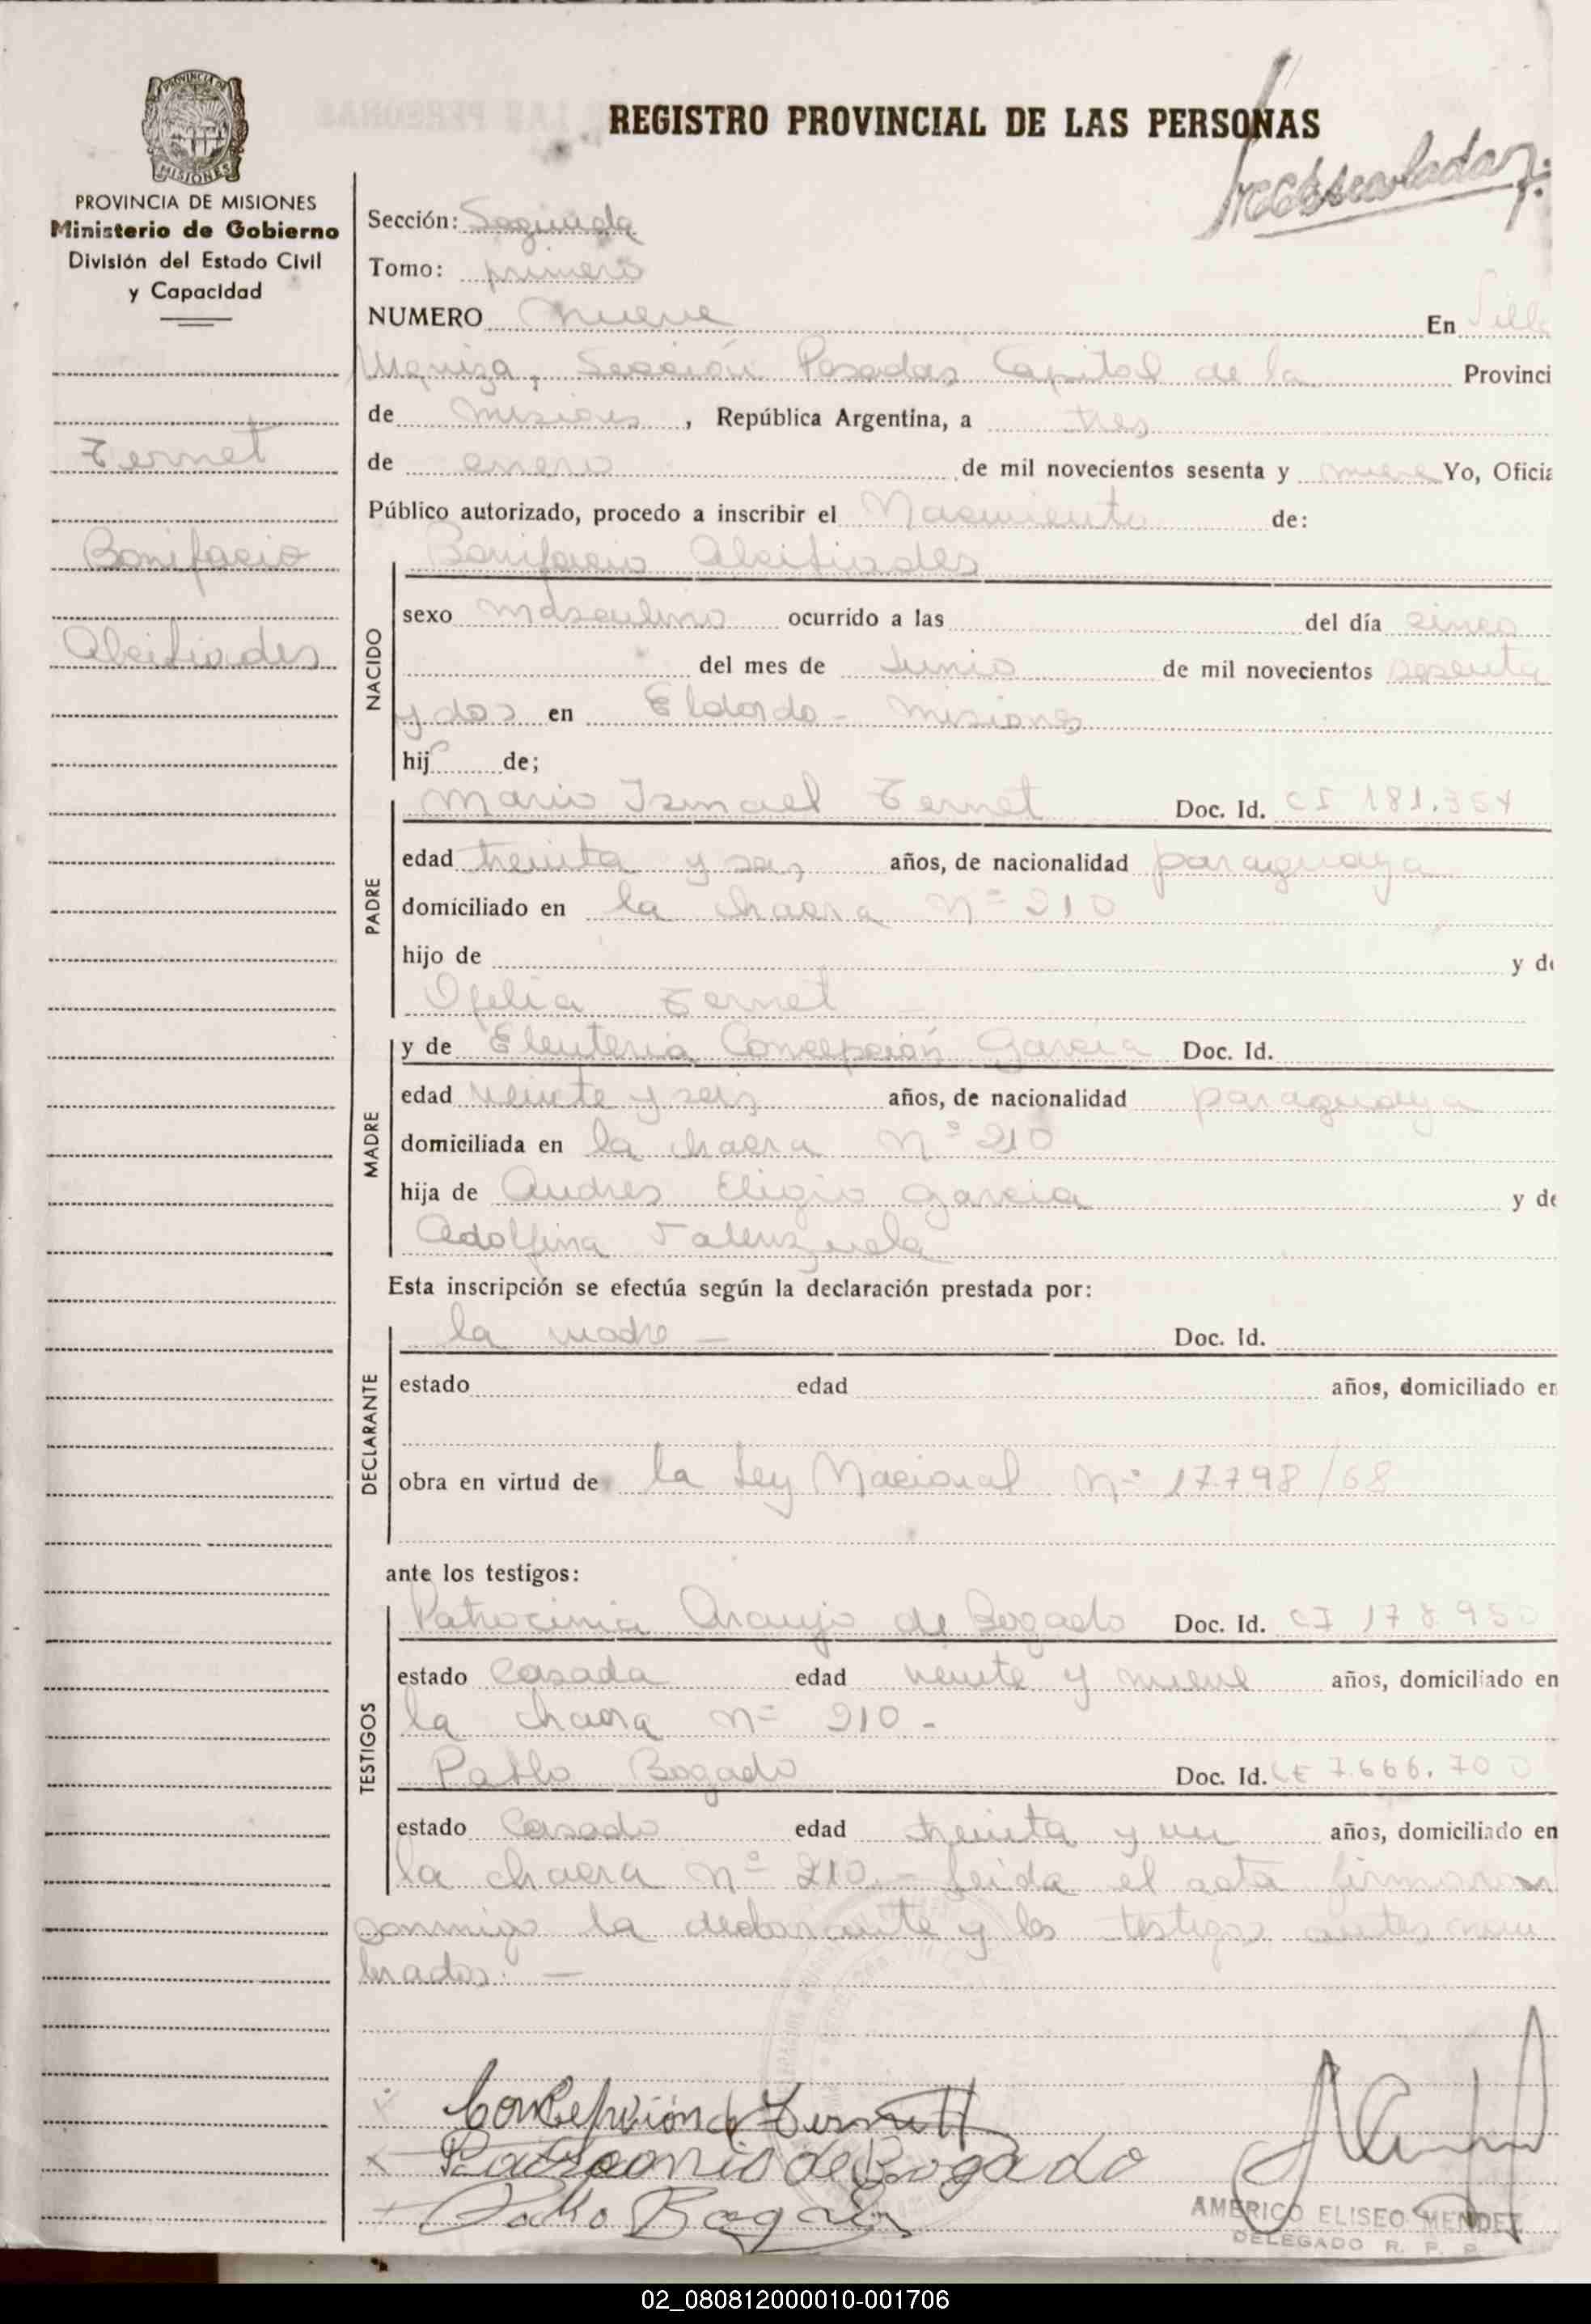 REGISTRO PROVINCIAL DE LAS PERSONAS
PROVINCIA DE MISIONES
MISIONES
PROVINCIA DE MISIONES
Ministerio de Gobierno
División del Estado Civil
y Capacidad
Ternet
Bonifacio
Alcibiades
Sección: Segunda
Tomo: primero
NUMERO nueve En Villa
Urquiza, Sección Posadas Capital de la Provinci
de Misiones, República Argentina, a tres
de enero de mil novecientos sesenta y nueve Yo, Oficia
Público autorizado, procedo a inscribir el Nacimiento de:
NACIDO
Bonifacio Alcibiades
sexo masculino ocurrido a las del día cinco
del mes de Junio de mil novecientos sesenta
y dos en Eldordo - Misiones
hijo de;
PADRE
Mario Ismael Ternet Doc. Id. CI 181.354
edad treinta y seis años, de nacionalidad paraguaya
domiciliado en la chacra Nº 210
hijo de y de
Ofelia Ternet
MADRE
y de Eleuteria Concepción Garcia Doc. Id.
edad veinte y seis años, de nacionalidad paraguaya
domiciliada en la chacra Nº 210
hija de Andres Eligio Garcia y de
Adolfina Valenzuela
Esta inscripción se efectúa según la declaración prestada por:
DECLARANTE
la madre - Doc. Id.
estado edad años, domiciliado en
obra en virtud de la Ley Nacional Nº 17.798/68
ante los testigos:
TESTIGOS
Patrocinia Araujo de Bogado Doc. Id. CI 178.950
estado Casada edad veinte y nueve años, domiciliado en
la chacra Nº 210 -
Pablo Bogado Doc. Id. LE 7.666.700
estado Casado edad treinta y un años, domiciliado en
la chacra Nº 210. - Leida el acta firmaron
conmigo la declarante y los testigos antes nom
brados. -
Concepción de Ternett
Patrocinio de Bogado
Pablo Bogado
AMERICO ELISEO MENDEZ
DELEGADO R. P. P.
02_080812000010-001706